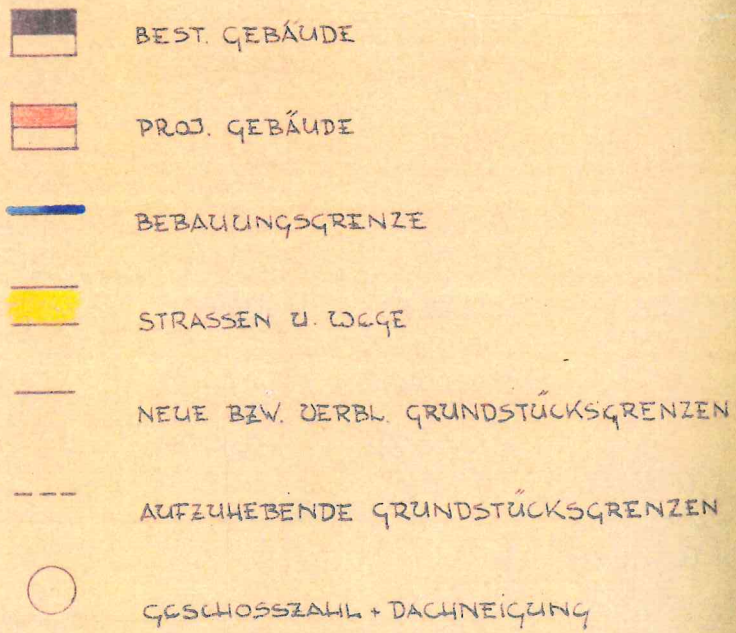 BEST. GEBÄUDE
PROJ. GEBÄUDE
BEBAUUNGSGRENZE
STRASSEN U. WEGE
NEUE BZW. VERBL. GRUNDSTÜCKSGRENZEN
AUFZUHEBENDE GRUNDSTÜCKSGRENZEN
GESCHOSSZAHL + DACHNEIGUNG